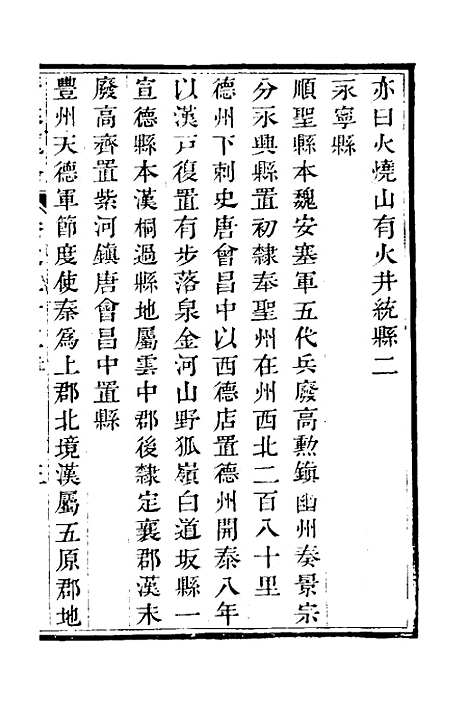 亦曰火燒山有火井統縣二
永寧縣
順聖縣本魏安塞軍五代兵廢高勲鎮幽州奏景宗
分永興縣置初隸奉聖州在州西北二百八十里
德州下刺史唐會昌中以西德店置德州開泰八年
以漢戸復置有步落泉金河山野狐嶺白道坂縣一
宣德縣本漢桐過縣地屬雲中郡後隸定襄郡漢末
廢高齊置紫河鎮唐會昌中置縣
豐州天德軍節度使秦爲上郡北境漢屬五原郡地